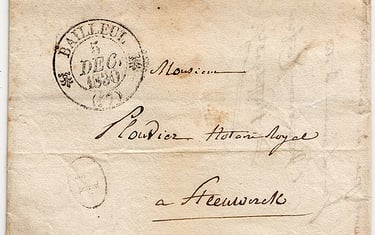 BAILLEUL
5
DEC.
1830
(57)
Monsieur
Plouvier Notaire Royal
a Steenwerck